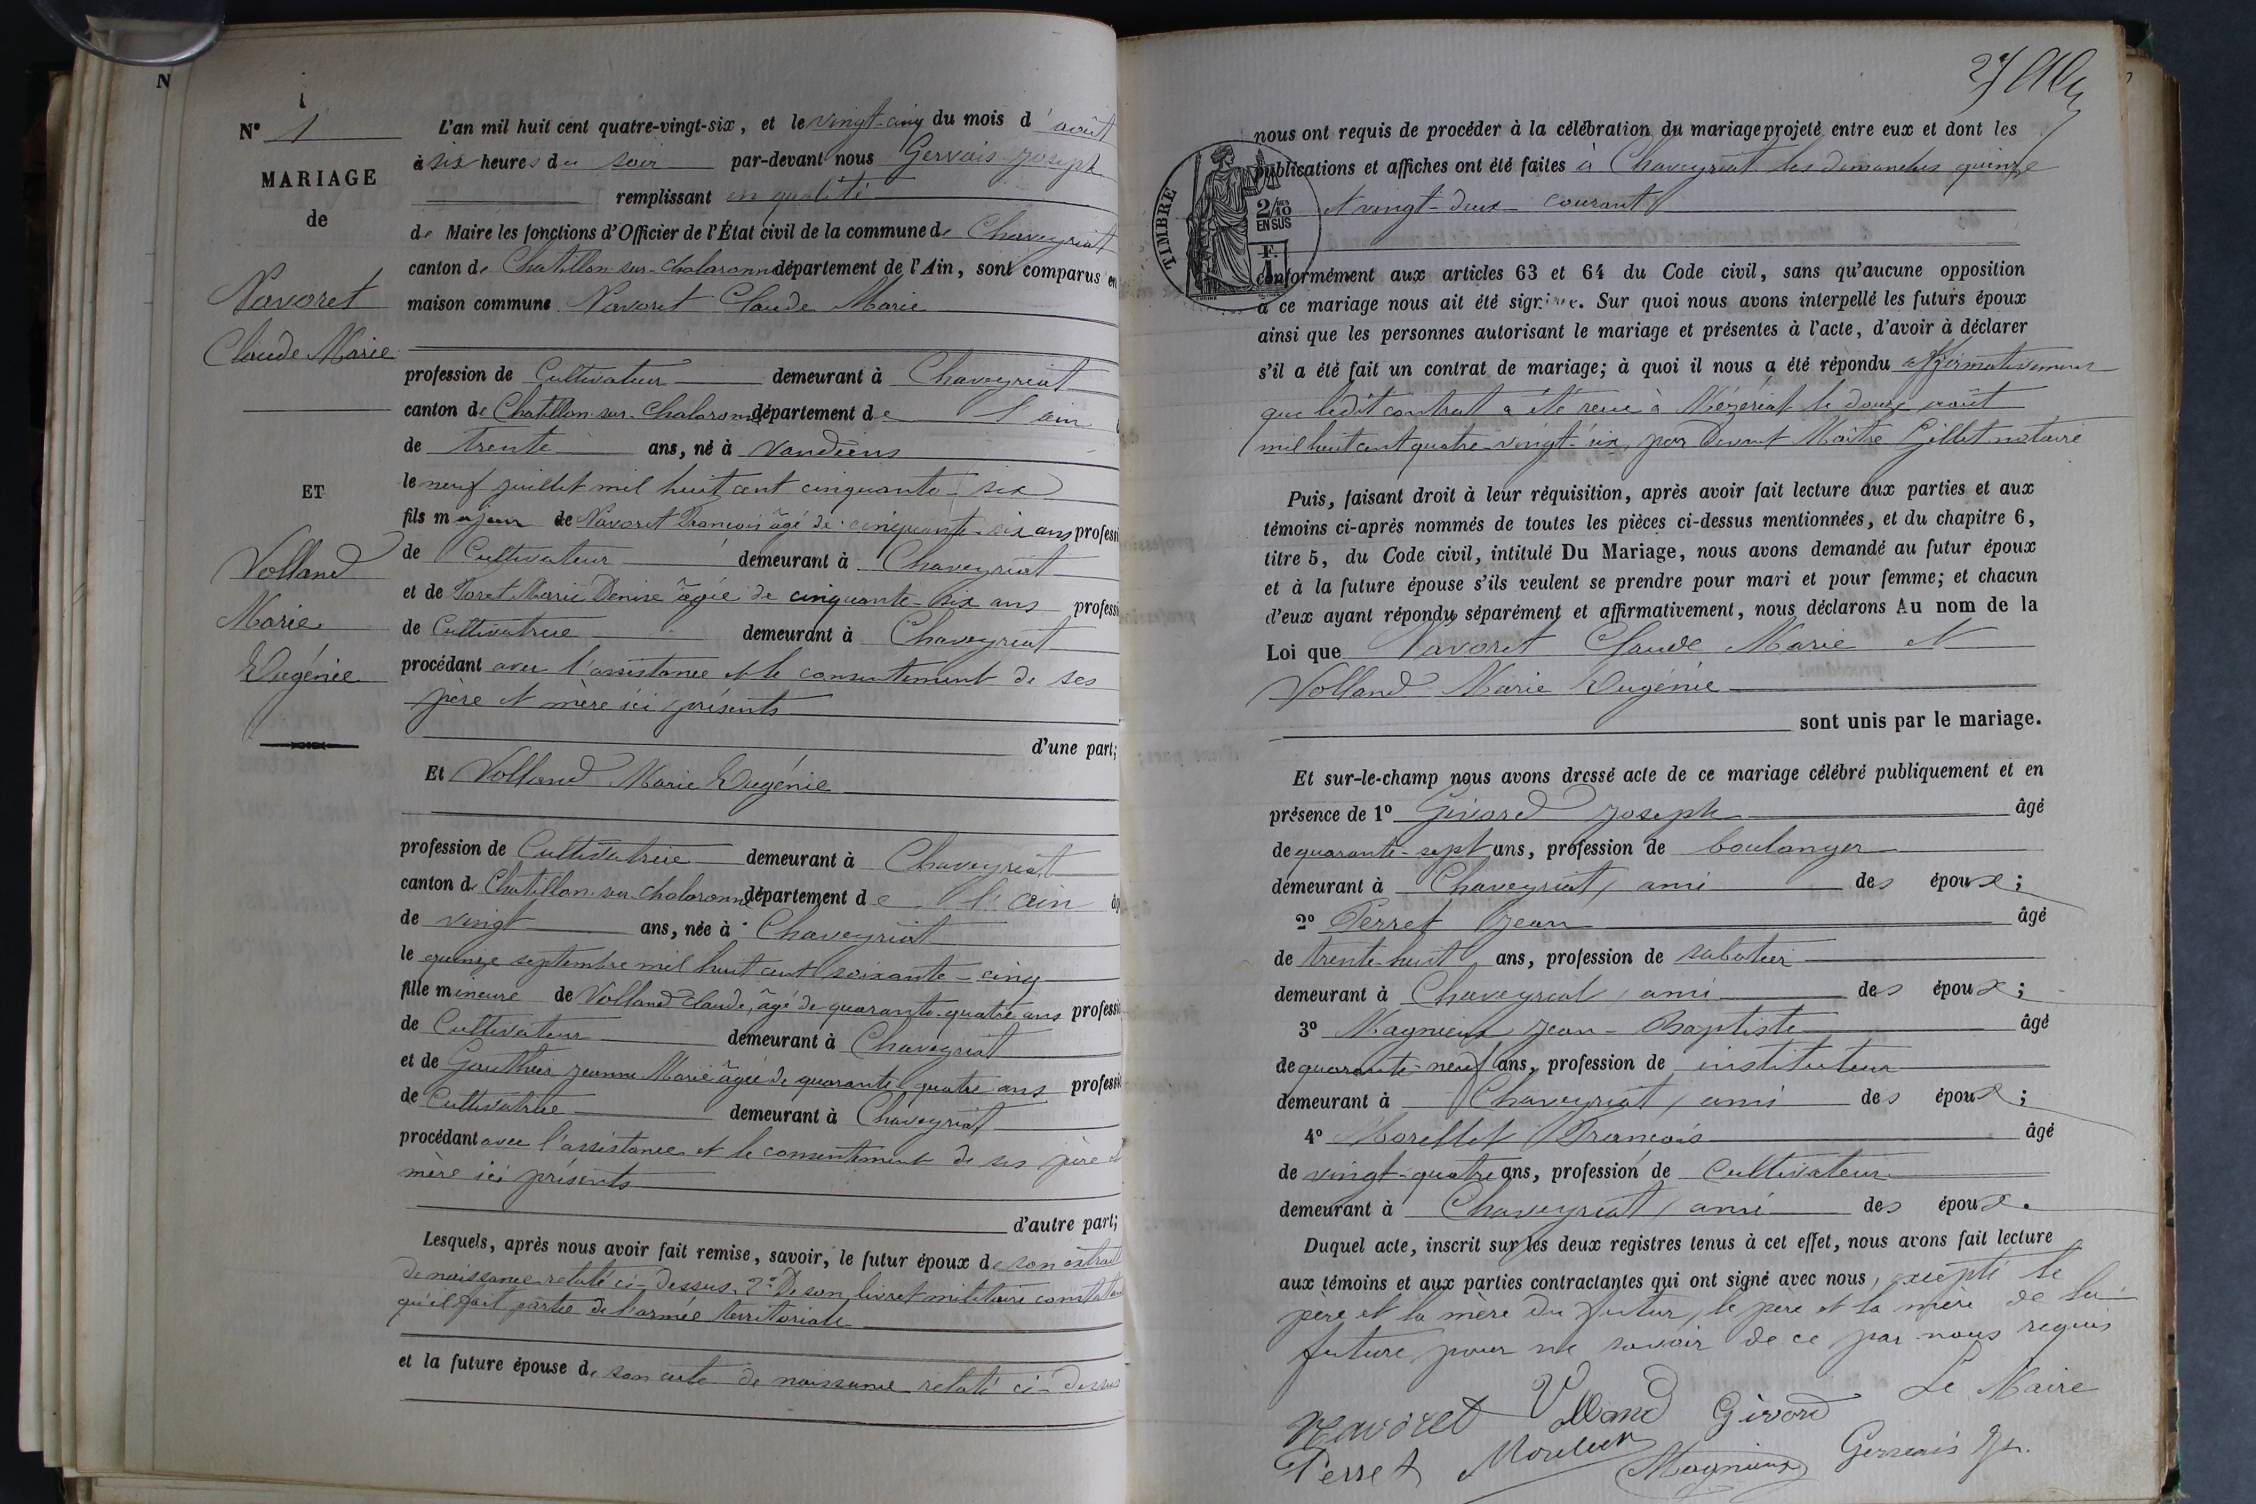 N
N° 1
MARIAGE
de
Navoret
Claude Marie
ET
Volland
Marie
Eugénie
L'an mil huit cent quatre-vingt-six, et le vingt-cinq du mois d'août
à six heures du soir par-devant nous Gervais Joseph
remplissant en qualité
de Maire les fonctions d'Officier de l'État civil de la commune de Chaveyriat
canton de Chatillon-sur-Chalaronne département de l'Ain, sont comparus en
maison commune Navoret Claude Marie
profession de Cultivateur demeurant à Chaveyriat
canton de Chatillon-sur-Chalaronne département de l'ain
de trente ans, né à Vandeins
le neuf juillet mil huit cent cinquante-six
fils majeur de Navoret François âgé de cinquante-six ans professi
de Cultivateur demeurant à Chaveyriat
et de Marie Denise âgée de cinquante-six ans professi
de Cultivatrice demeurant à Chaveyriat
procédant avec l'assistance et le consentement de ses
père et mère ici présents
d'une part;
Et Volland Marie Eugénie
profession de Cultivatrice demeurant à Chaveyriat
canton de Chatillon-sur-chalaronne département de l'ain âg
de vingt ans, née à Chaveyriat
le quinze septembre mil huit cent soixante-cinq
fille mineure de Volland Claude, âgé de quarante-quatre ans professi
de Cultivateur demeurant à Chaveyriat
et de Gauthier Jeanne Marie âgée de quarante-quatre ans professi
de Cultivatrice demeurant à Chaveyriat
procédant avec l'assistance et le consentement de ses père et
mère ici présents
d'autre part;
Lesquels, après nous avoir fait remise, savoir, le futur époux de son extrait
de naissance relaté ci-dessus, 2° De son livret militaire constatant
qu'il fait partie de l'armée territoriale
et la future épouse de son acte de naissance relaté ci-dessus
27
nous ont requis de procéder à la célébration du mariage projeté entre eux et dont les
publications et affiches ont été faites à Chaveyriat les dimanches quinze
et vingt-deux courant
TIMBRE
2/10
EN SUS
F.
1
conformément aux articles 63 et 64 du Code civil, sans qu'aucune opposition
à ce mariage nous ait été signifiée. Sur quoi nous avons interpellé les futurs époux
ainsi que les personnes autorisant le mariage et présentes à l'acte, d'avoir à déclarer
s'il a été fait un contrat de mariage; à quoi il nous a été répondu affirmativement
que ledit contrat a été reçu à Mézériat le douze août
mil huit cent quatre-vingt-six, par Devant Maître Gillet notaire
Puis, faisant droit à leur réquisition, après avoir fait lecture aux parties et aux
témoins ci-après nommés de toutes les pièces ci-dessus mentionnées, et du chapitre 6,
titre 5, du Code civil, intitulé Du Mariage, nous avons demandé au futur époux
et à la future épouse s'ils veulent se prendre pour mari et pour femme; et chacun
d'eux ayant répondu séparément et affirmativement, nous déclarons Au nom de la
Loi que Navoret Claude Marie et
Volland Marie Eugénie
sont unis par le mariage.
Et sur-le-champ nous avons dressé acte de ce mariage célébré publiquement et en
présence de 1° Givord Joseph âgé
de quarante-sept ans, profession de boulanger
demeurant à Chaveyriat, ami des époux;
2° Perret Jean âgé
de trente-huit ans, profession de sabotier
demeurant à Chaveyriat, ami des époux;
3° Magnieux Jean-Baptiste âgé
de quarante-neuf ans, profession de instituteur
demeurant à Chaveyriat, ami des époux;
4° Morellet François âgé
de vingt-quatre ans, profession de Cultivateur
demeurant à Chaveyriat, ami des époux.
Duquel acte, inscrit sur les deux registres tenus à cet effet, nous avons fait lecture
aux témoins et aux parties contractantes qui ont signé avec nous, excepté le
père et la mère du futur, le père et la mère de la
future, pour ne savoir de ce par nous requis
Le Maire
Navoret Volland Givord
Perret Morellet Magnieux Gervais